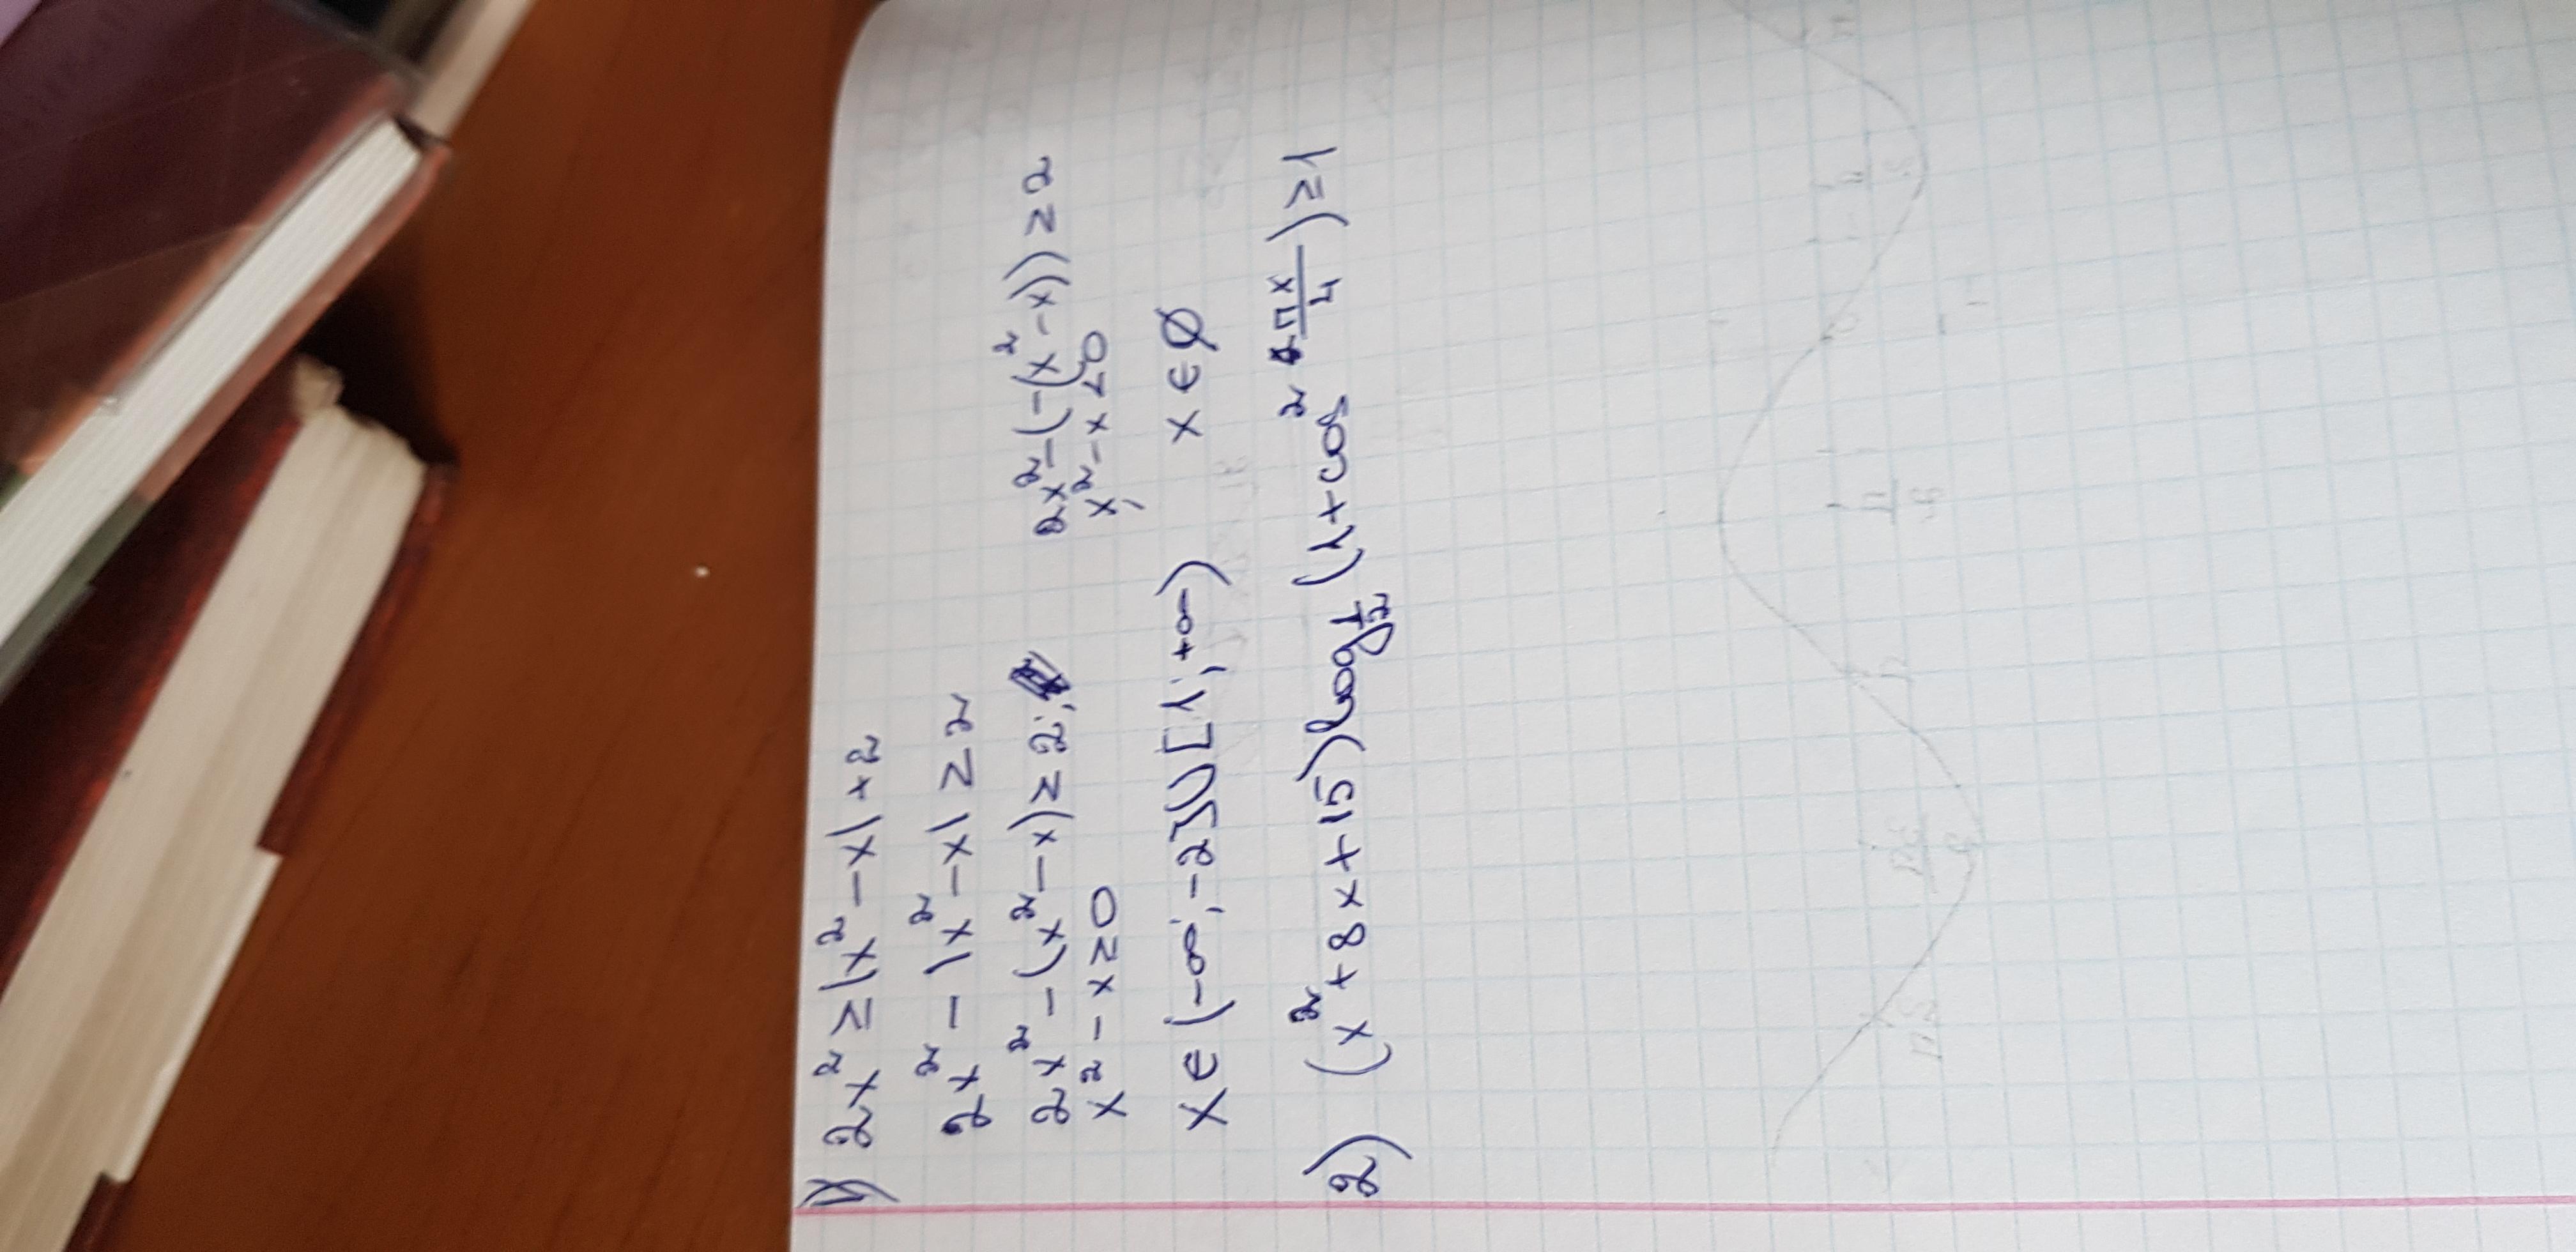 1) 2x² ≥ |x² - x| + 2
2x² - |x² - x| ≥ 2
2x² - (x² - x) ≥ 2; 2x² - (-(x² - x)) ≥ 2
x² - x ≥ 0 x² - x < 0
x ∈ (-∞; -2] ∪ [1; +∞) x ∈ ∅
2) (x² + 8x + 15) log 1/2 (1 + cos² πx/4) ≥ 1